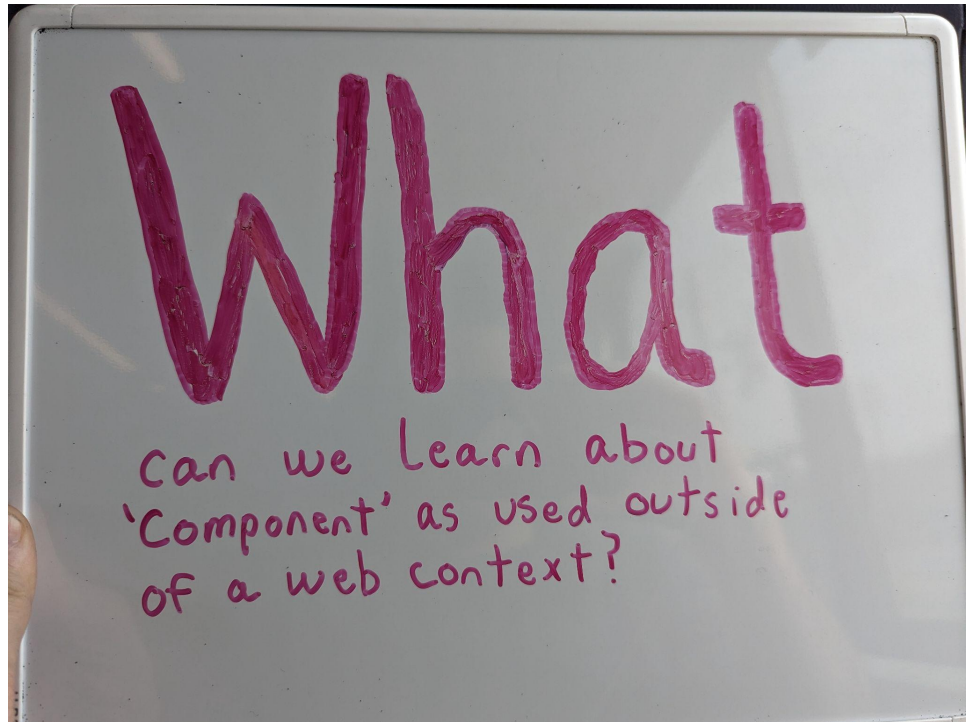 What
can we learn about
'Component' as used outside
of a web context?